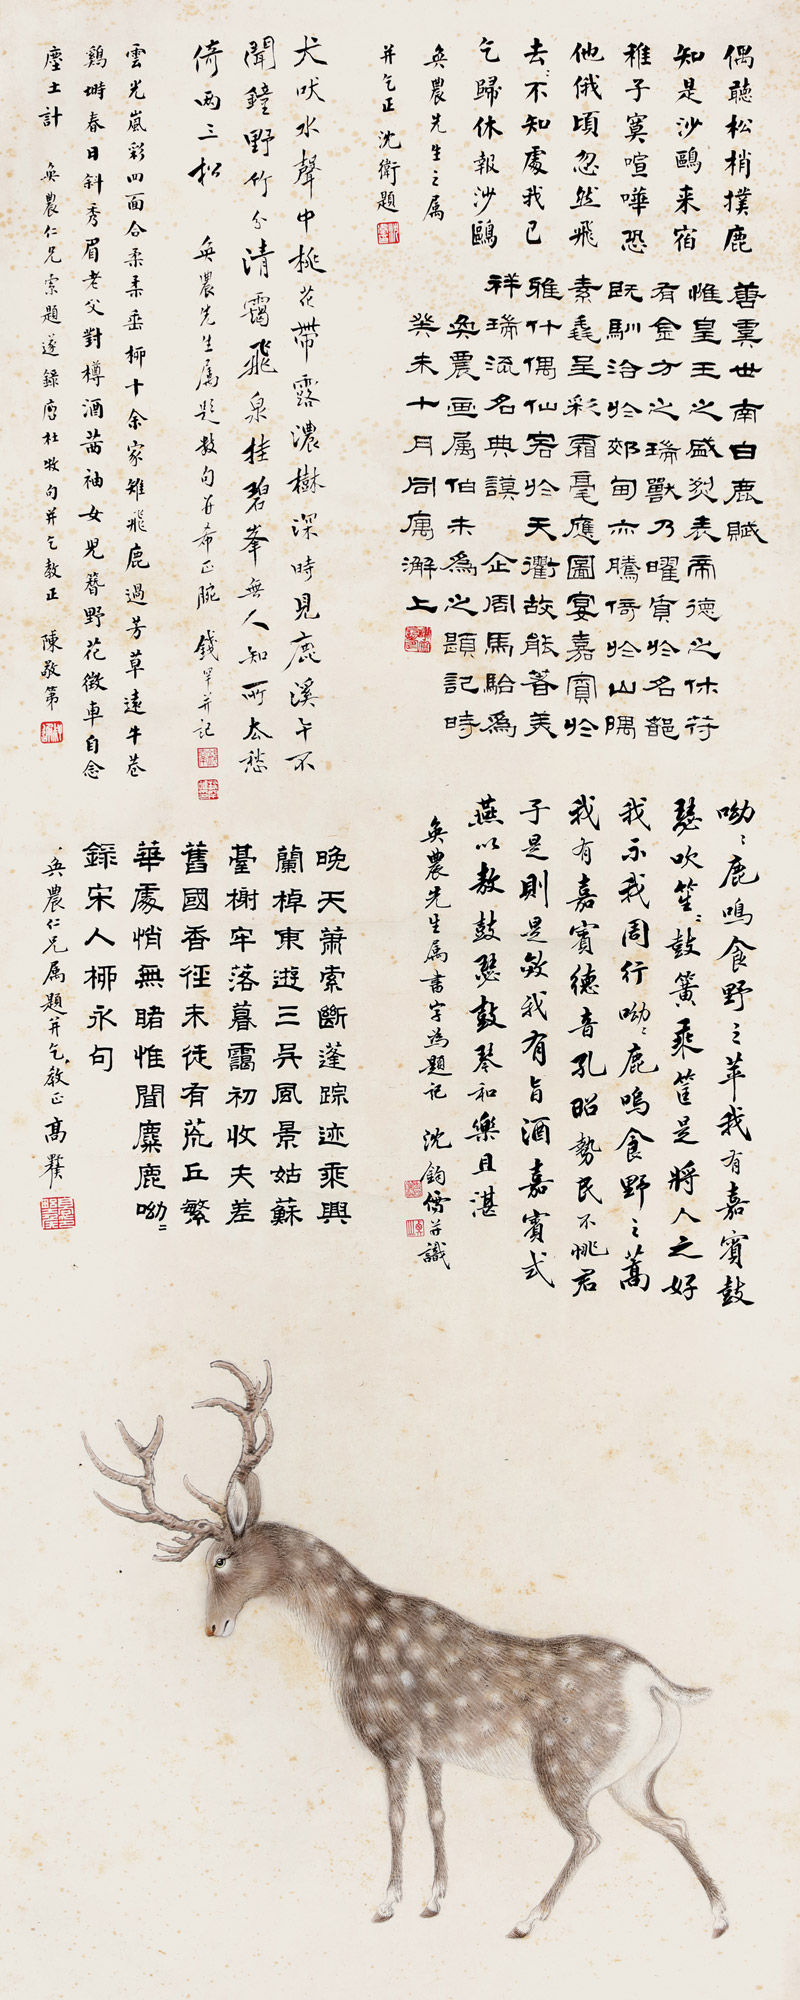 偶聽松梢撲鹿
知是沙鷗来宿
稚子莫喧嘩恐
他俄頃忽然飛
去〻不知處我已
乞歸休報沙鷗
奂農先生之属
并乞正沈衛題
善虞世南白鹿賦
惟皇王之盛烈表帝德之休符
有金方之瑞獸乃曜質於名都
既馴洽於郊甸亦騰倚於山隅
素毳呈彩霜毫應圖宴嘉賓於
雅什偶仙客於天衢故能著美
祥瑞流名典謨 企周馬駘為
奂農画属伯未為之題記時
癸未十月同寓澥上
犬吠水聲中桃花帶露濃樹深時見鹿溪午不
聞鐘野竹分清靄飛泉挂碧峯無人知所去愁
倚两三松
奂農先生属題数句并希正腕 錢罕并記
雲光嵐彩四面合柔柔垂柳十余家雉飛鹿過芳草遠牛巷
鷄塒春日斜秀眉老父對樽酒茜袖女兒簪野花徵車自念
塵土計 奂農仁兄索題遂録唐杜牧句并乞教正 陳敬第
呦〻鹿鳴食野之苹我有嘉賓鼓
瑟吹笙〻鼓簧承筐是將人之好
我示我周行呦〻鹿鳴食野之蒿
我有嘉賓德音孔昭視民不恌君
子是則是傚我有旨酒嘉賓式
燕以敖鼓瑟鼓琴和樂且湛
奂農先生属書字為題記 沈鈞儒并識
晚天蕭索斷蓬踪迹乘興
蘭棹東遊三吳風景姑蘇
臺榭牢落暮靄初收夫差
舊國香徑未徒有荒丘繁
華處悄無睹惟聞麋鹿呦〻
録宋人柳永句
奂農仁兄属題并乞教正高